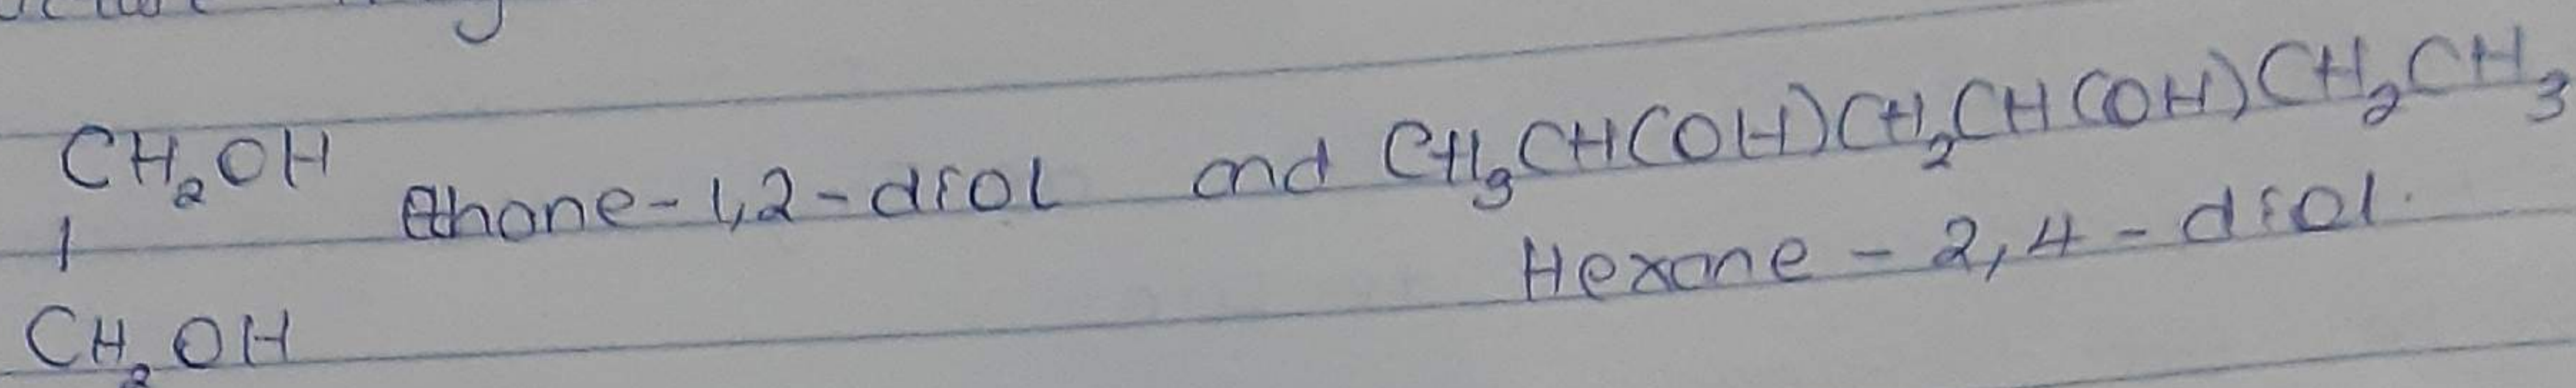 CH₂OH
| Ethane-1,2-diol and CH₃CH(OH)CH₂CH(OH)CH₂CH₃
CH₂OH Hexane - 2,4 - diol.